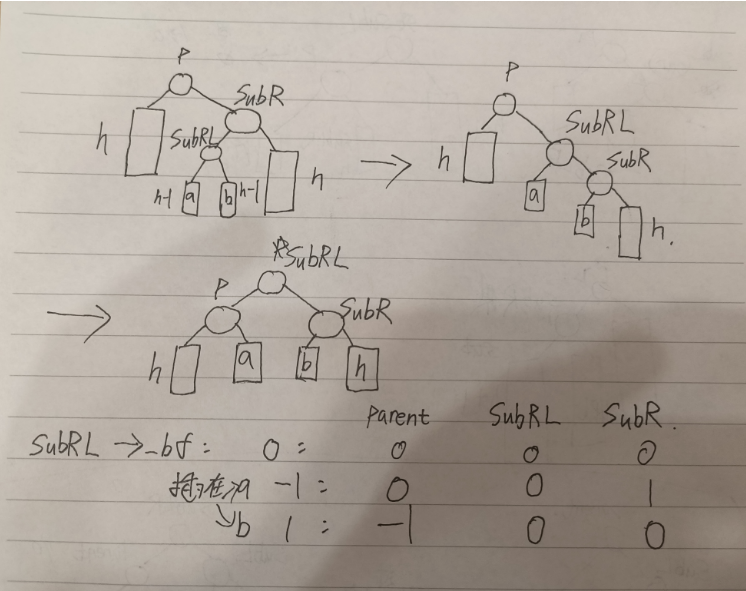 P
SubR
h
SubRL
h-1 a b h-1
h
P
SubRL
h
SubR
a
b
h.
SubRL
P
SubR
h a b h
Parent SubRL SubR.
SubRL →_bf: 0: 0 0 0
a -1: 0 0 1
b 1: -1 0 0